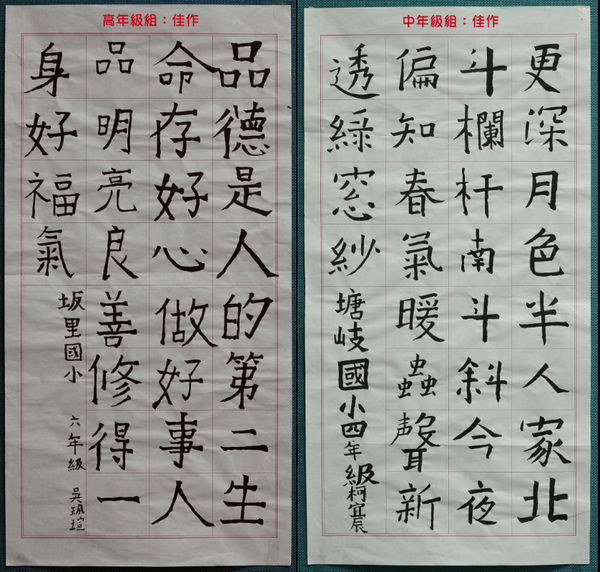 高年級組：佳作
品德是人的第二生
命存好心做好事人
品明亮良善修得一
身好福氣
坂里國小 六年級 吳珮瑄
中年級組：佳作
更深月色半人家北
斗欄杆南斗斜今夜
偏知春氣暖蟲聲新
透綠窓紗
塘岐國小四年級柯宜辰